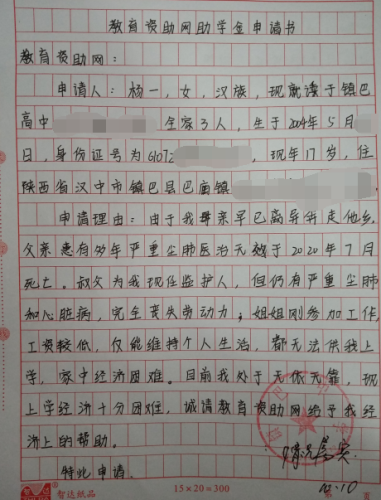 教育资助网助学金申请书
教育资助网：
申请人：杨一，女，汉族，现就读于镇巴
高中 全家3人，生于2004年5月
日，身份证号为61072 ，现年17岁，住
陕西省汉中市镇巴县巴庙镇
申请理由：由于我母亲早已离异外走他乡，
父亲患有多年严重尘肺医治无效于2020年7月
死亡。叔父为我现任监护人，但仍有严重尘肺
和心脏病，完全丧失劳动力，姐姐刚参加工作，
工资较低，仅能维持个人生活，都无法供我上
学，家中经济困难。目前我处于无依无靠，现
上学经济十分困难，诚请教育资助网给予我经
济上的帮助。
情况属实
特此申请
10.10
智达纸品
15×20=300